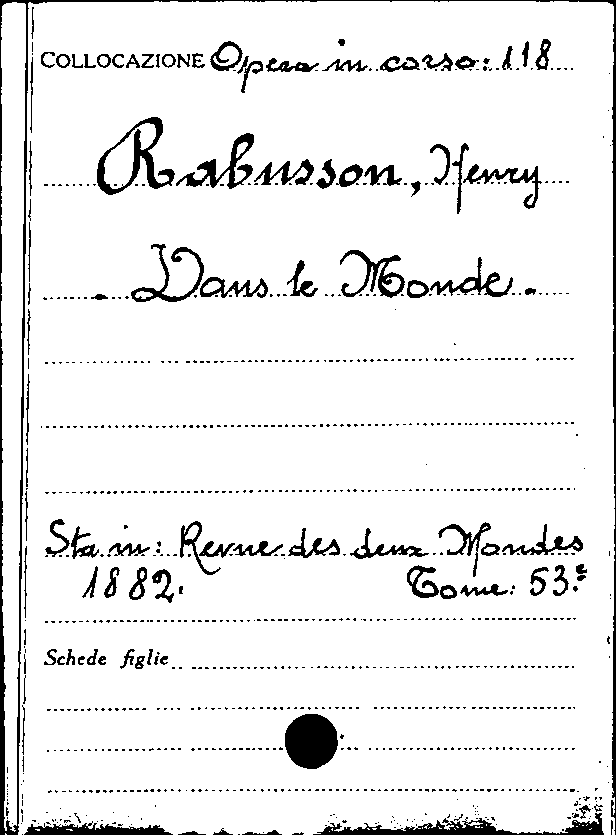 COLLOCAZIONE Opera in corso: 118
Rabusson, Henry
. Dans le Monde .
Sta in: Revue des deux Mondes
1882. Tome: 53.e
Schede figlie